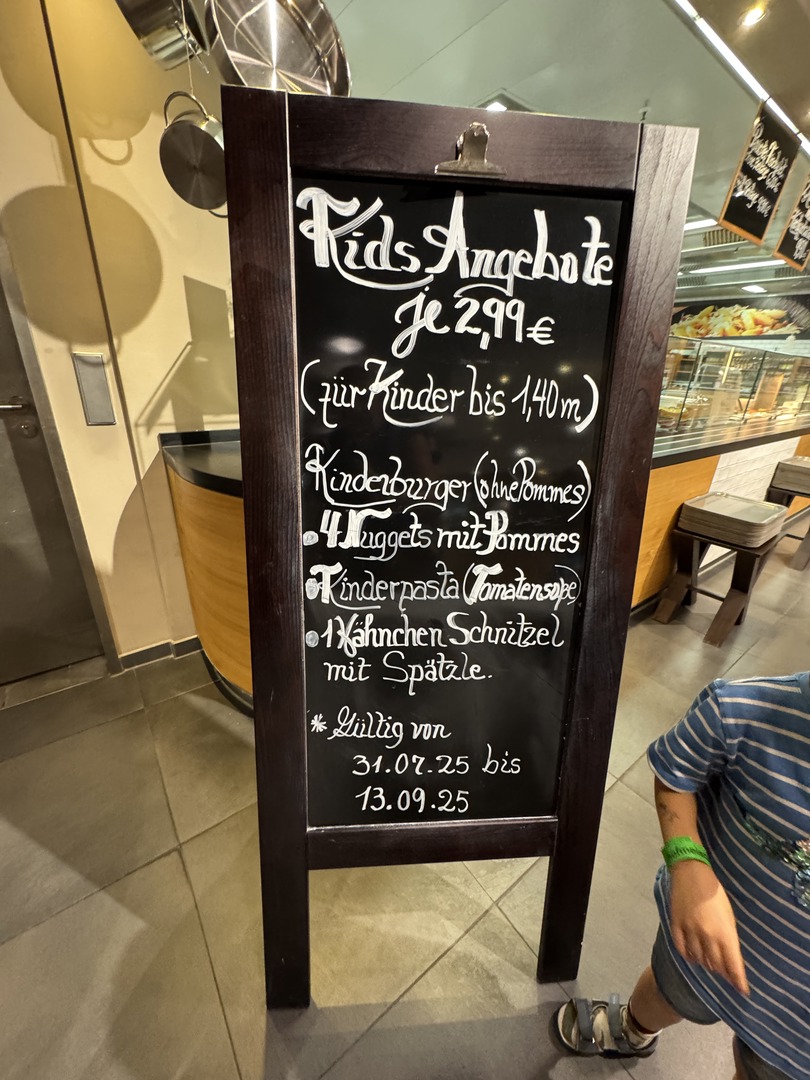 Kids Angebote
je 2,99 €
(für Kinder bis 1,40 m)
Kinderburger (ohne Pommes)
• 4 Nuggets mit Pommes
• Kinderpasta (Tomatensoße)
• 1 Hähnchen Schnitzel
mit Spätzle.
* Gültig von
31.07.25 bis
13.09.25